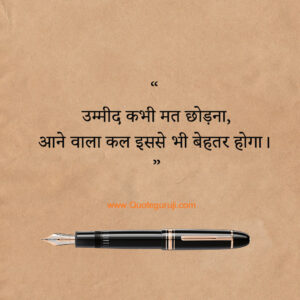 “
उम्मीद कभी मत छोड़ना,
आने वाला कल इससे भी बेहतर होगा।
”
www.Quoteguruji.com